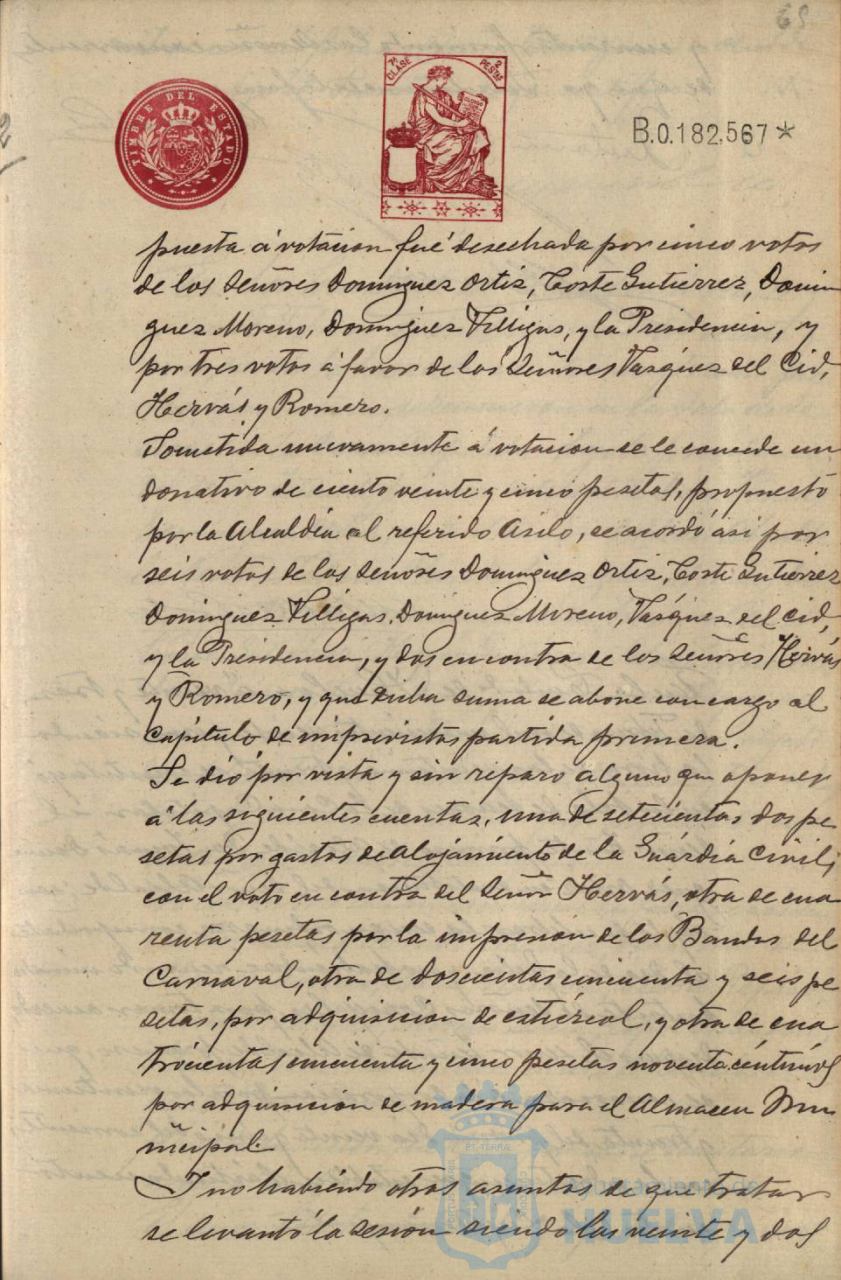 69
TIMBRE DEL ESTADO
7ª CLASE 2 PESTAS
B.0.182.567*
puesta á votacion fué desechada por cinco votos
de los Señores Dominguez Ortiz, Coste Gutierrez, Domin
guez Moreno, Dominguez Villigas, y la Presidencia, y
por tres votos á favor de los Señores Vasquez del Cid,
Hervás y Romero.
Sometida nuevamente á votacion se le concede un
donativo de ciento veinte y cinco pesetas, propuesto
por la Alcaldía al referido Asilo, se acordó asi por
seis votos de los Señores Dominguez Ortiz, Coste Gutierrez
Dominguez Villigas, Dominguez Moreno, Vasquez del Cid,
y la Presidencia, y dos en contra de los Señores Hervás
y Romero, y que dicha suma se abone con cargo al
Capitulo de imprevistos partida primera.
Se dió por vista y sin reparo alguno que oponer
á las siguientes cuentas, una de setecientas dos pe
setas por gastos de alojamiento de la Guárdia Civil,
con el voto en contra del Señor Hervás, otra de cua
renta pesetas por la impresion de los Bandos del
Carnaval, otra de doscientas cincuenta y seis pe
setas, por adquisicion de estiércol, y otra de cua
trocientas cincuenta y cinco pesetas noventa céntimos
por adquisicion de madera para el Almacen Mu
nicipal.
Y no habiendo otros asuntos de que tratar
se levantó la sesion siendo las veinte y dos
HUELVA